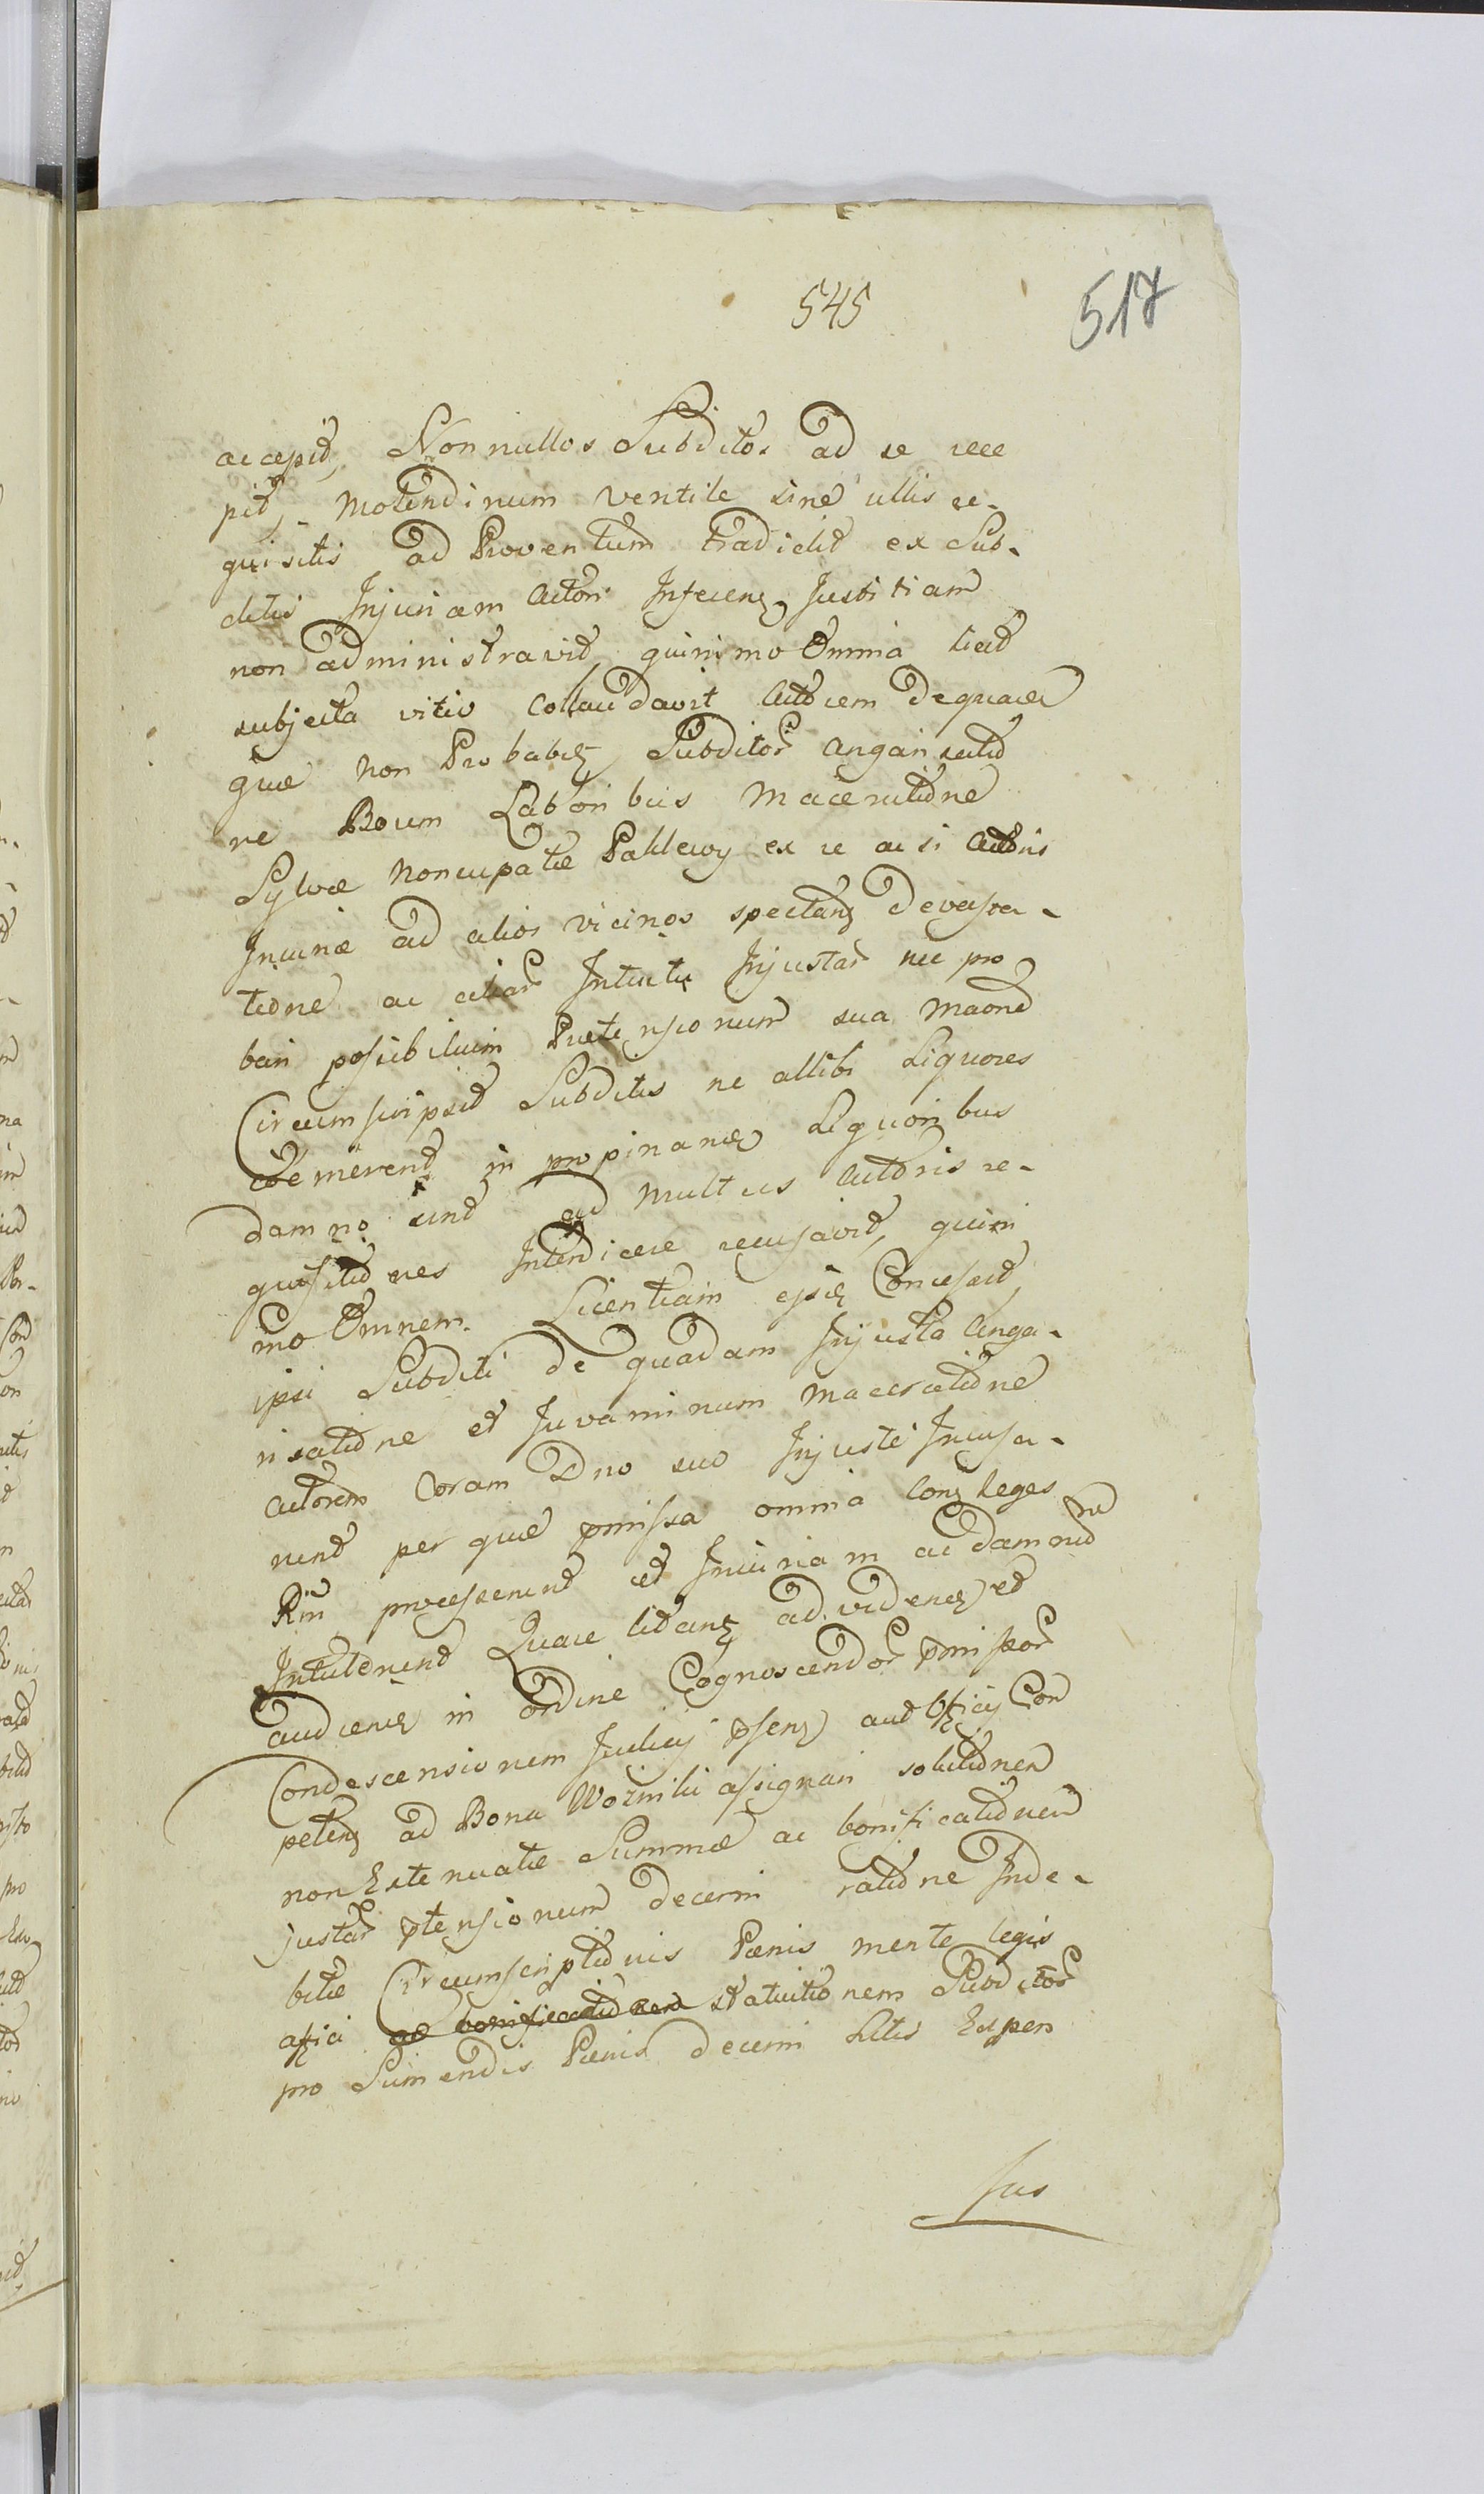 545
517
accepit, Nonnullos Subditos ad se rece
pit, Molendinum ventile sine ullis re-
quisitis ad Proventum tradidit ex Sub-
ditis Injuriam Actori Inferens Justitiam
non administravit, quinimo Omnia liat
subjecta vitio Collaudavit Actorem
quæ non Probabit, Subditor angarisatio
ne Boum Laboribus Maceratione
Sylvæ Noncupatæ Pahlewy ex re ac si Actoris
Incuriæ ad alios vicinos spectan devasta-
tione ac aliar Intuitu Injustar nec pro
bari possibilium Prætensionum sua Maone
Circumscripsit Subditis ne allibi Liquores
emerent in propinan Liquoribus
damno sint ad multas Actoris re-
quisitiones Interdicere recusavit, quini
mo Omnem Licentiam ejsis Concessit,
ipsi Subditi de quadam Injusta Anga-
risatione et Juvaminum maceratione
Actorem Coram Dno suo Injuste Incusa-
runt per quæ pmissa omnia Con Leges
Rni processerunt et Injuriam ac damnu
Intulerunt Quare litan ad viden et
audien in ordine Cognoscendor pmissor
Condescensionem Judicy psen aut Officy Con
peten ad Bona Woznilu assignari solutionem
non Extenuatæ Summæ ac bonificationem
justar ptensionum decerni ratione Inde-
bitæ Circumscriptionis Pænis mente legis
affici ac bonificationem statuitionem Subditor
pro Sumendis Pænis decerni Litis Expen
sus